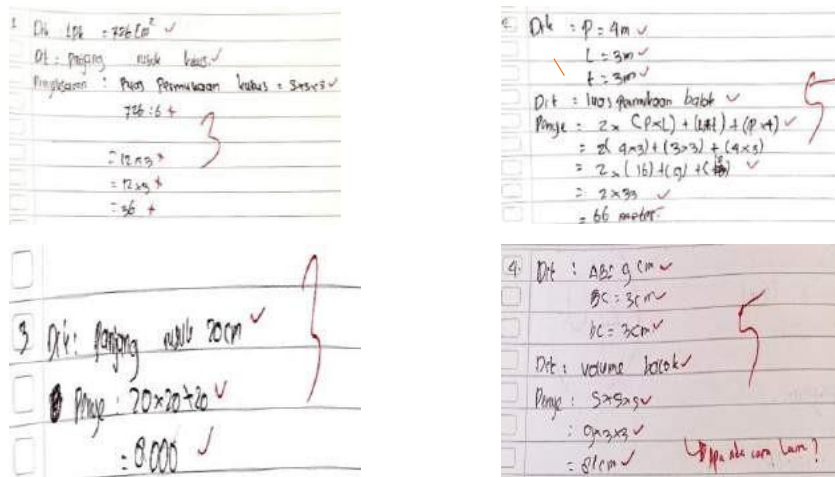 1 Dik LPK = 726 cm²
Dit : panjang rusuk kubus.
Penyelesaian : Luas Permukaan kubus = s×s×s
726 : 6
= 12 × 3
= 12 × 3
= 36
3
2. Dik : P = 4m
L = 3m
t = 3m
Dit : luas permukaan balok
Penye = 2 × (P×L) + (L×t) + (P×t)
= 2( 4×3) + (3×3) + (4×3)
= 2 × ( 16) + (9) +
= 2 × 33
= 66 meter.
5
3 Dik : Panjang rusuk 20cm
Penye : 20×20×20
= 8.000
4. Dit : ABC 9 cm
BC = 3cm
= 3cm
Dit : volume balok
Penye : S×S×S
: 9×3×3
= 81cm
5
Apa ada cara lain ?